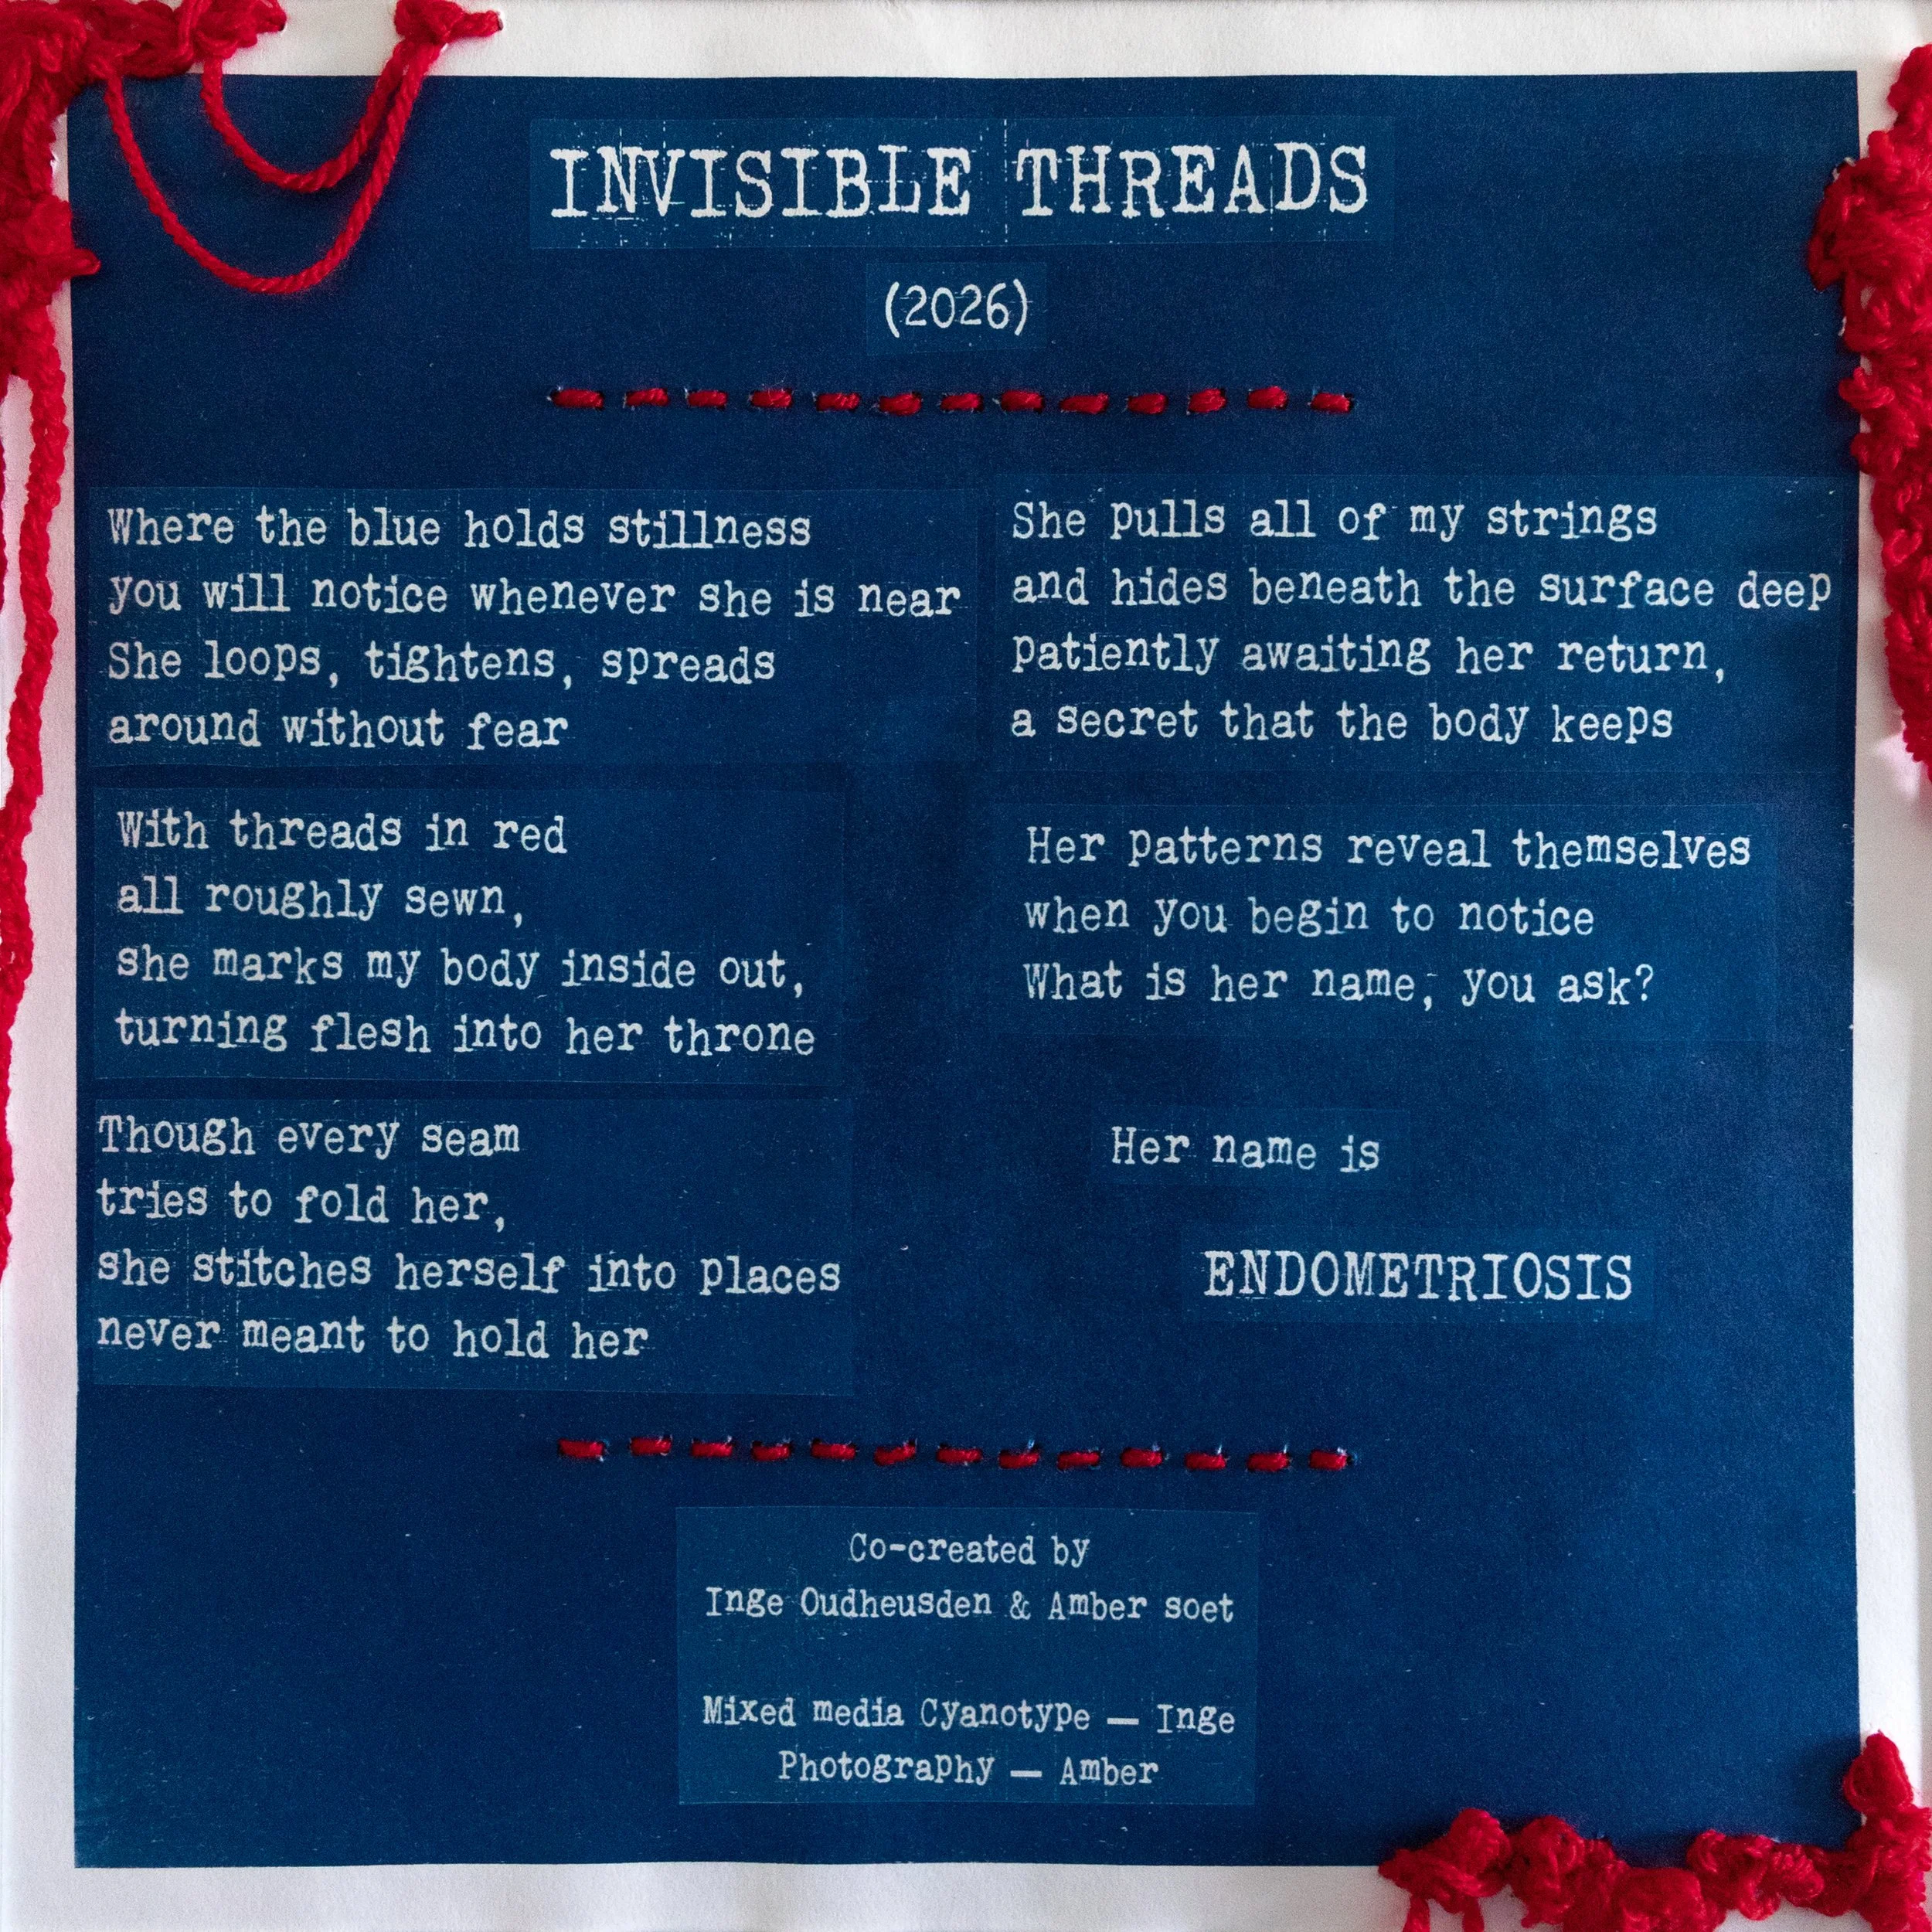 INVISIBLE THREADS
(2026)
Where the blue holds stillness
you will notice whenever she is near
She loops, tightens, spreads
around without fear
With threads in red
all roughly sewn,
she marks my body inside out,
turning flesh into her throne
Though every seam
tries to fold her,
she stitches herself into places
never meant to hold her
She pulls all of my strings
and hides beneath the surface deep
patiently awaiting her return,
a secret that the body keeps
Her patterns reveal themselves
when you begin to notice
What is her name, you ask?
Her name is
ENDOMETRIOSIS
Co-created by
Inge Oudheusden & Amber soet
Mixed media Cyanotype — Inge
Photography — Amber